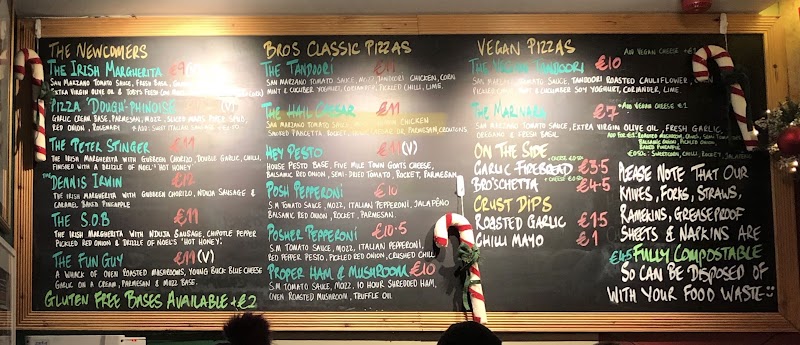 THE NEWCOMERS
THE IRISH MARGHERITA €9 (V)
SAN MARZANO TOMATO SAUCE, FRESH BASIL,
EXTRA VIRGIN OLIVE OIL & TOBY'S
PIZZA 'DOUGH'-PHINOISE (V)
GARLIC CREAM BASE, PARMESAN, MOZZ,
RED ONION, ROSEMARY
THE PETER STINGER €11
THE IRISH MARGHERITA WITH GUBBEEN CHORIZO, DOUBLE GARLIC, CHILLI,
FINISHED WITH A DRIZZLE OF NOEL'S 'HOT HONEY'
THE DENNIS IRWIN €12
THE IRISH MARGHERITA WITH GUBBEEN CHORIZO, NDUJA SAUSAGE &
CARAMEL BAKED PINEAPPLE
THE S.O.B €11
THE IRISH MARGHERITA WITH NDUJA SAUSAGE, CHIPOTLE PEPPER
PICKLED RED ONION & DRIZZLE OF NOEL'S 'HOT HONEY'.
THE FUN GUY €11 (V)
A WHACK OF OVEN ROASTED MUSHROOMS, YOUNG BUCK BLUE CHEESE
GARLIC ON A CREAM, PARMESAN & MOZZ BASE.
GLUTEN FREE BASES AVAILABLE +€2
BROS CLASSIC PIZZAS
THE TANDOORI €11
SAN MARZANO TOMATO SAUCE, MOZZ, TANDOORI CHICKEN, CORN,
MINT & CUCUMBER YOGHURT, CORIANDER, PICKLED CHILLI, LIME.
THE HAIL CAESAR €11
SAN MARZANO TOMATO SAUCE, CHICKEN
SMOKED PANCETTA, ROCKET, CAESAR OR PARMESAN, CROUTONS.
HEY PESTO €11 (V)
HOUSE PESTO BASE, FIVE MILE TOWN GOATS CHEESE,
BALSAMIC RED ONION, SEMI-DRIED TOMATO, ROCKET, PARMESAN.
POSH PEPPERONI €10
S.M TOMATO SAUCE, MOZZ, ITALIAN PEPPERONI, JALAPEÑO
BALSAMIC RED ONION, ROCKET, PARMESAN.
POSHER PEPPERONI €10.5
S.M TOMATO SAUCE, MOZZ, ITALIAN PEPPERONI,
RED PEPPER PESTO, PICKLED RED ONION, CRUSHED CHILLI
PROPER HAM & MUSHROOM €10
S.M TOMATO SAUCE, MOZZ, 10 HOUR SHREDDED HAM,
OVEN ROASTED MUSHROOM, TRUFFLE OIL
VEGAN PIZZAS
ADD VEGAN CHEESE +€1
THE VEGAN TANDOORI €10
SAN MARZANO TOMATO SAUCE, TANDOORI ROASTED CAULIFLOWER, ONION
PICKLED CHILLI, MINT & CUCUMBER SOY YOGHURT, CORIANDER, LIME.
THE MARINARA €7 +ADD VEGAN CHEESE €1
SAN MARZANO TOMATO SAUCE, EXTRA VIRGIN OLIVE OIL, FRESH GARLIC,
OREGANO & FRESH BASIL
ROASTED MUSHROOM, OLIVES,
BALSAMIC ONION, PICKLED ONION
BAKED PINEAPPLE
SWEETCORN, CHILLI, ROCKET, JALAPEÑO
ON THE SIDE
GARLIC FIREBREAD €3.5
BRO'SCHETTA €4.5
CRUST DIPS
ROASTED GARLIC €1.5
CHILLI MAYO €1
PLEASE NOTE THAT OUR
KNIVES, FORKS, STRAWS,
RAMEKINS, GREASEPROOF
SHEETS & NAPKINS ARE
FULLY COMPOSTABLE
SO CAN BE DISPOSED OF
WITH YOUR FOOD WASTE